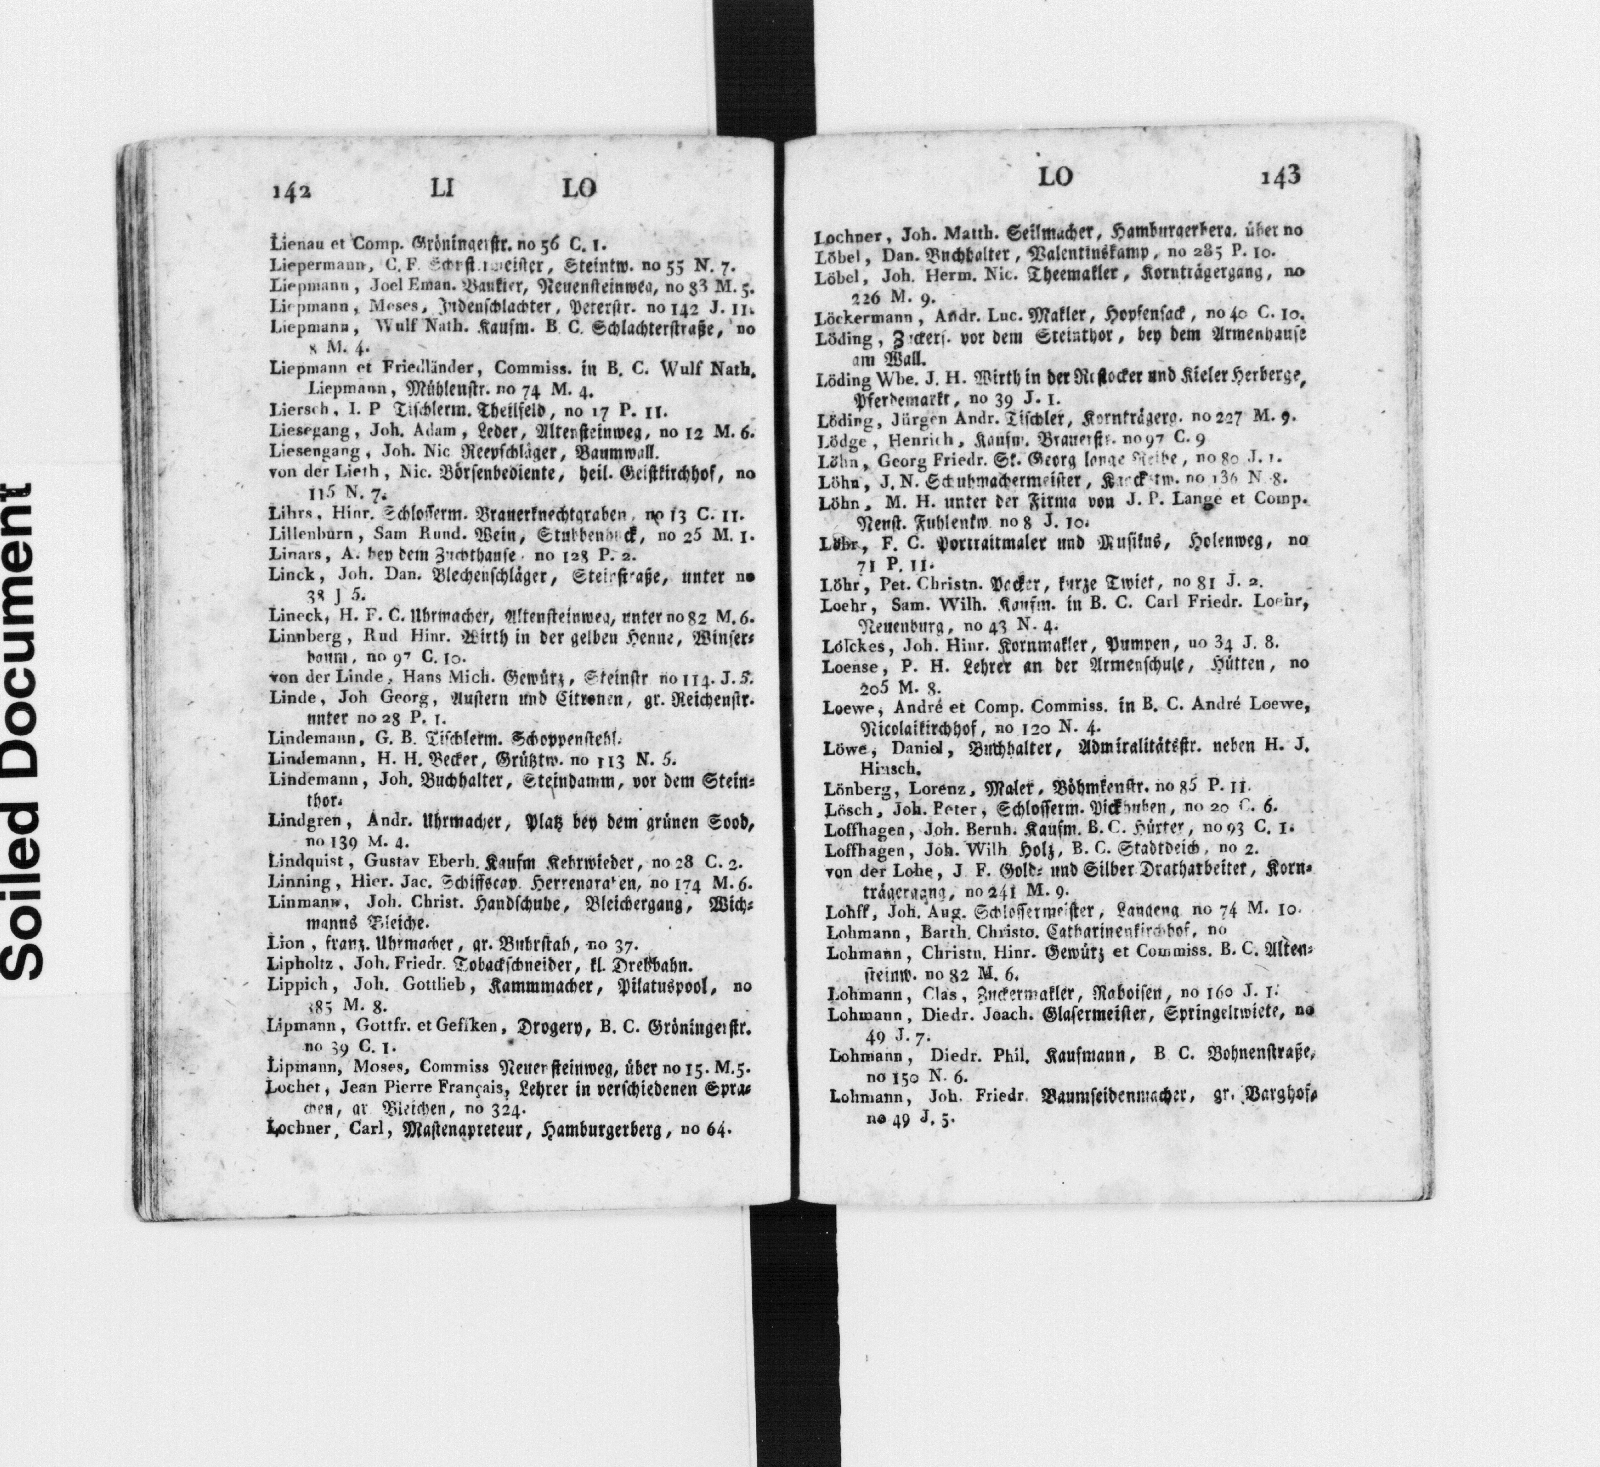 142 LI LO
Lienau et Comp. Gröningerstr. no 56 C. 1.
Liepermann, C. F. Steintw. no 55 N. 7.
Liepmann, Joel Eman. Bankier, Neuensteinweg, no 83 M. 5.
Liepmann, Moses, Judenschlachter, Peterstr. no 142 J. 11.
Liepmann, Wulf Nath. Kaufm. B. C. Schlachterstraße, no
8 M. 4.
Liepmann et Friedländer, Commiss. in B. C. Wulf Nath.
Liepmann, Mühlenstr. no 74 M. 4.
Liersch, I. P. Tischlerm. Theilfeld, no 17 P. 11.
Liesegang, Joh. Adam, Leder, Altensteinweg, no 12 M. 6.
Liesengang, Joh. Nic Reepschläger, Baumwall.
von der Lieth, Nic. Börsenbediente, heil. Geistkirchhof, no
115 N. 7.
Lihrs, Hinr. Schlosserm. Brauerknechtgraben, no 13 C. 11.
Lillenburn, Sam Rund. Wein, Stubbenhuck, no 25 M. 1.
Linars, A. bey dem Zuchthause, no 128 P. 2.
Linck, Joh. Dan. Blechenschläger, Steinstraße, unter no
38 J 5.
Lineck, H. F. C. Uhrmacher, Altensteinweg, unter no 82 M. 6.
Linnberg, Rud Hinr. Wirth in der gelben Henne, Winser-
baum, no 97 C. 10.
von der Linde, Hans Mich. Gewürz, Steinstr no 114. J. 5.
Linde, Joh Georg, Austern und Citronen, gr. Reichenstr.
unter no 28 P. 1.
Lindemann, G. B. Tischlerm. Schoppenstehl.
Lindemann, H. H. Becker, Grütztw. no 113 N. 5.
Lindemann, Joh. Buchhalter, Steindamm, vor dem Stein-
thor.
Lindgren, Andr. Uhrmacher, Platz bey dem grünen Sood,
no 139 M. 4.
Lindquist, Gustav Eberh. Kaufm Kehrwieder, no 28 C. 2.
Linning, Hier. Jac. Schiffscap. Herrengraben, no 174 M. 6.
Linmann, Joh. Christ. Handschuhe, Bleichergang, Wich-
manns Bleiche.
Lion, franz. Uhrmacher, gr. Buhrstah, no 37.
Lipholtz, Joh. Friedr. Tobackschneider, kl. Drehbahn.
Lippich, Joh. Gottlieb, Kammmacher, Pilatuspool, no
385 M. 8.
Lipmann, Gottfr. et Gefiken, Drogery, B. C. Gröningerstr.
no 39 C. 1.
Lipmann, Moses, Commiss Neuensteinweg, über no 15. M. 5.
Lochet, Jean Pierre Français, Lehrer in verschiedenen Spra-
chen, gr Bleichen, no 324.
Lochner, Carl, Mastenapreteur, Hamburgerberg, no 64.
LO 143
Lochner, Joh. Matth. Seilmacher, Hamburgerberg. über no
Löbel, Dan. Buchhalter, Valentinskamp, no 285 P. 10.
Löbel, Joh. Herm. Nic. Theemakler, Kornträgergang, no
226 M. 9.
Löckermann, Andr. Luc. Makler, Hopfensack, no 40 C. 10.
Löding, Zuckers. vor dem Steinthor, bey dem Armenhause
am Wall.
Löding Wbe. J. H. Wirth in der Rostocker und Kieler Herberge,
Pferdemarkt, no 39 J. 1.
Löding, Jürgen Andr. Tischler, Kornträgerg. no 227 M. 9.
Lödge, Henrich, Kaufm. Brauerstr. no 97 C. 9
Löhn, Georg Friedr. St. Georg lange Reihe, no 80 J. 1.
Löhn, J. N. Schuhmachermeister, no 136 N 8.
Löhn, M. H. unter der Firma von J. P. Lange et Comp.
Neust. Fuhlentw no 8 J. 10.
Löhr, F. C. Portraitmaler und Musikus, Holenweg, no
71 P. 11.
Löhr, Pet. Christn. Packer, kurze Twiet, no 81 J. 2.
Loehr, Sam. Wilh. Kaufm. in B. C. Carl Friedr. Loehr,
Neuenburg, no 43 N. 4.
Lölckes, Joh. Hinr. Kornmakler, Pumpen, no 34 J. 8.
Loense, P. H. Lehrer an der Armenschule, Hütten, no
205 M. 8.
Loewe, André et Comp. Commiss. in B. C. André Loewe,
Nicolaikirchhof, no 120 N. 4.
Löwe, Daniel, Buchhalter, Admiralitätsstr. neben H. J.
Hinsch.
Lönberg, Lorenz, Maler, Böhmkenstr. no 85 P. 11.
Lösch, Joh. Peter, Schlosserm. Pickhuben, no 20 C. 6.
Loffhagen, Joh. Bernh. Kaufm. B. C. Hüxter, no 93 C. 1.
Loffhagen, Joh. Wilh Holz, B. C. Stadtdeich, no 2.
von der Lohe, J F. Gold- und Silber Dratharbeiter, Korn-
trägergang, no 241 M. 9.
Lohff, Joh. Aug. Schlossermeister, Langeng no 74 M. 10.
Lohmann, Barth. Christo. Catharinenkirchhof, no
Lohmann, Christn. Hinr. Gewürz et Commiss. B. C. Alten-
steinw. no 82 M. 6.
Lohmann, Clas, Zuckermakler, Raboisen, no 160 J. 1.
Lohmann, Diedr. Joach. Glasermeister, Springeltwiete, no
49 J. 7.
Lohmann, Diedr. Phil. Kaufmann, B C. Bohnenstraße,
no 150 N. 6.
Lohmann, Joh. Friedr. Baumseidenmacher, gr. Barghof,
no 49 J. 5.
Soiled Document